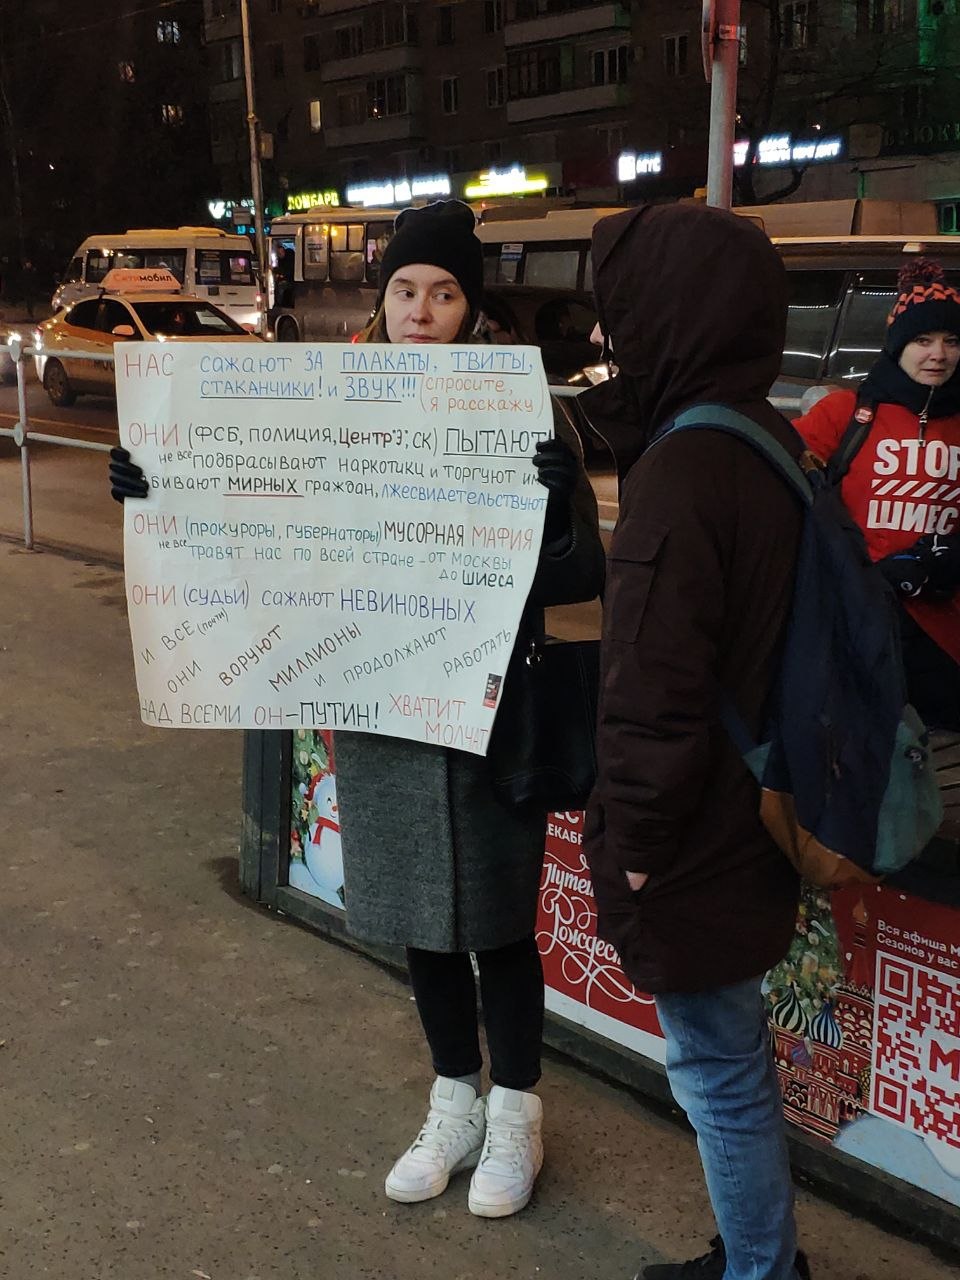 ЛОМБАРД
Ситимобил
НАС сажают ЗА ПЛАКАТЫ, ТВИТЫ,
СТАКАНЧИКИ! и ЗВУК!!! (спросите,
я расскажу)
ОНИ (ФСБ, ПОЛИЦИЯ, Центр "Э", СК) ПЫТАЮТ
не все
подбрасывают наркотики и торгуют им
бивают мирных граждан, лжесвидетельствуют
ОНИ (прокуроры, губернаторы) МУСОРНАЯ МАФИЯ
не все
травят нас по всей стране - от МОСКВЫ
до ШИЕСА
ОНИ (судьи) сажают НЕВИНОВНЫХ
И ВСЕ (почти)
ОНИ ВОРУЮТ МИЛЛИОНЫ
и ПРОДОЛЖАЮТ РАБОТАТЬ
НАД ВСЕМИ ОН-ПУТИН! ХВАТИТ
МОЛЧАТ
STOP
ШИЕС
Путе
Рождест
Вся афиша М
Сезонов у вас